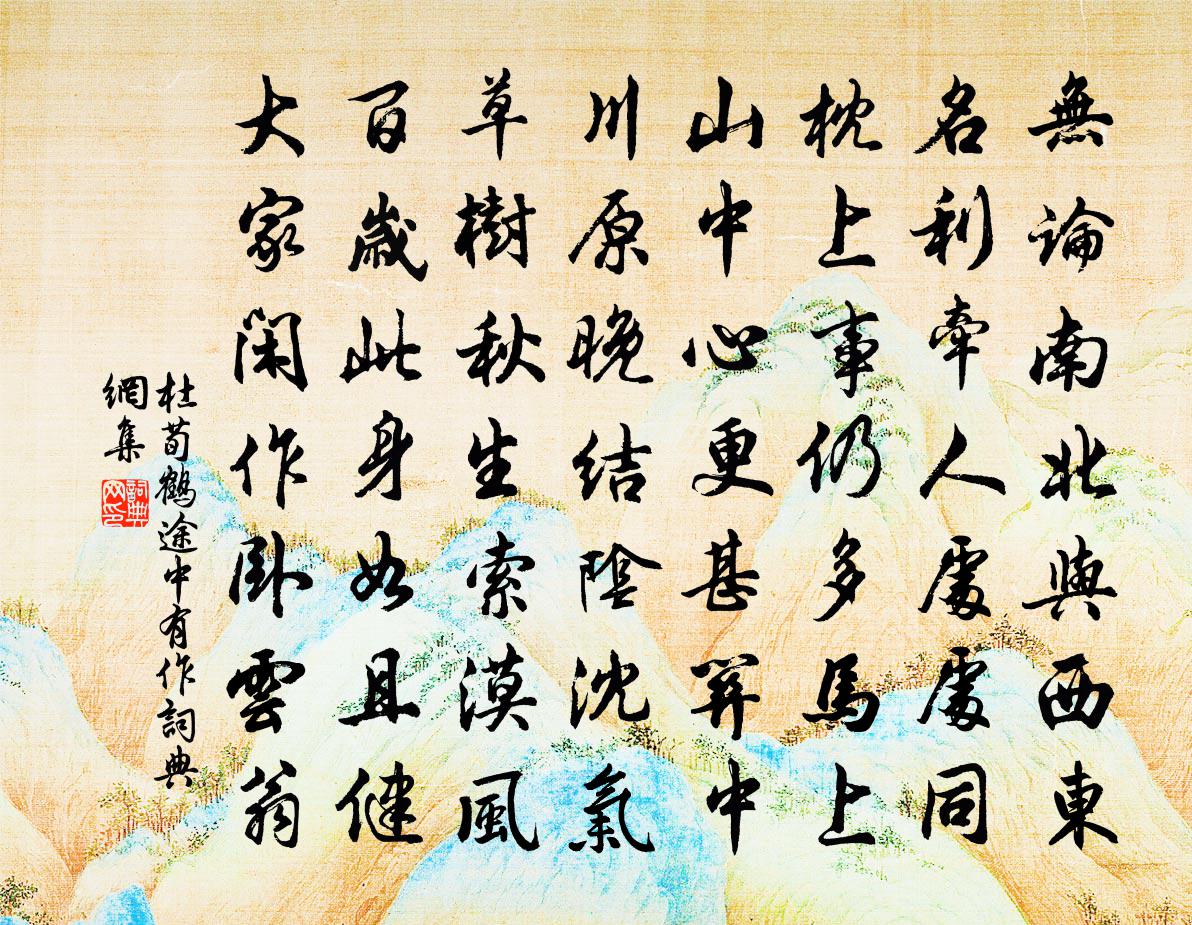 無論南北與西東
名利牽人處處同
枕上事仍多馬上
山中心更甚關中
川原晚結陰沈氣
草樹秋生索漠風
百歲此身如且健
大家閑作臥雲翁
杜荀鶴途中有作詞典
網集
詞典
网印